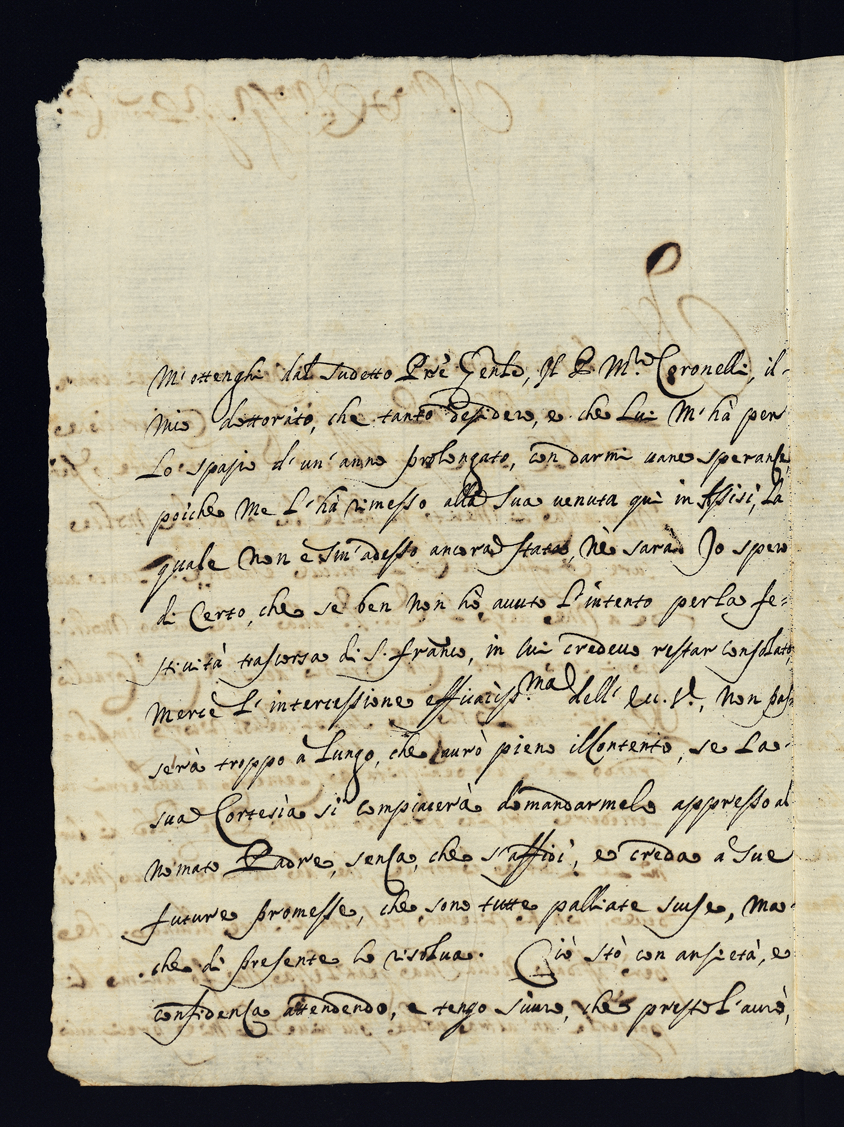 M'ottenghi dal sudetto Prè Genle, Il P. Mro Coronelli, il-
mio dottorato, che tanto desidero, e che Lui M'hà per
Lo spazio d'un'anno prolongato, con darmi uane speranze,
poiche Me L'hà rimesso alla sua uenuta qui in Assisi, La
quale Non è sin'adesso ancora stata, Nè sarà Io spero
di Certo, che se ben Non hò auuto L'intento per La fe=
stiuità trascorsa di S. Franco, in cui credeuo restar consolato,
Mercè L'intercessione efficaciss.ma dell' Ecc. V., Non pas=
serà troppo à Lungo, che aurò pieno il Contento, se La
sua Cortesia si compiacerà domandarmelo appresso al
Nomato Padre, senza, che s'affidi, e creda à sue
future promesse, che sono tutte palliate scuse, Ma
che di presente Lo risolua. Ciò stò con ansietà, e
confidenza attendendo, e tengo sicuro, che presto L'aurò,